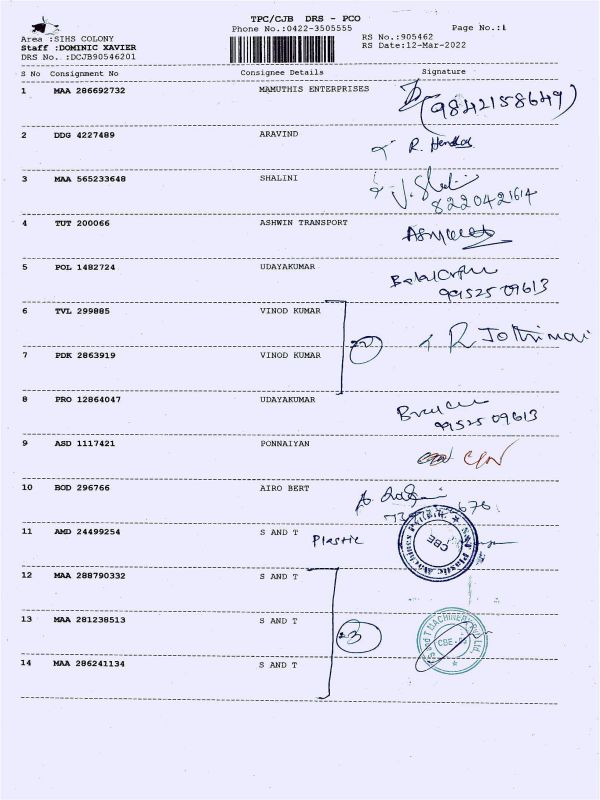 TPC/CJB DRS - PCO
Phone No.:0422-3505555
Page No.:1
Area :SIHS COLONY
Staff :DOMINIC XAVIER
DRS No. :DCJB90546201
RS No.:905462
RS Date:12-Mar-2022
S No Consignment No Consignee Details Signature
1 MAA 286692732 MAMUTHIS ENTERPRISES
(9842158649)
2 DDG 4227489 ARAVIND
3 MAA 565233648 SHALINI
8220421614
4 TUT 200066 ASHWIN TRANSPORT
5 POL 1482724 UDAYAKUMAR
99525 09613
6 TVL 299885 VINOD KUMAR
R Jothimai
7 PDK 2863919 VINOD KUMAR
8 PRO 12864047 UDAYAKUMAR
99525 09613
9 ASD 1117421 PONNAIYAN
10 BOD 296766 AIRO BERT
11 AMD 24499254 S AND T Plastic
CBE
12 MAA 288790332 S AND T
13 MAA 281238513 S AND T 3
S and T MACHINERY (P) Ltd.
14 MAA 286241134 S AND T